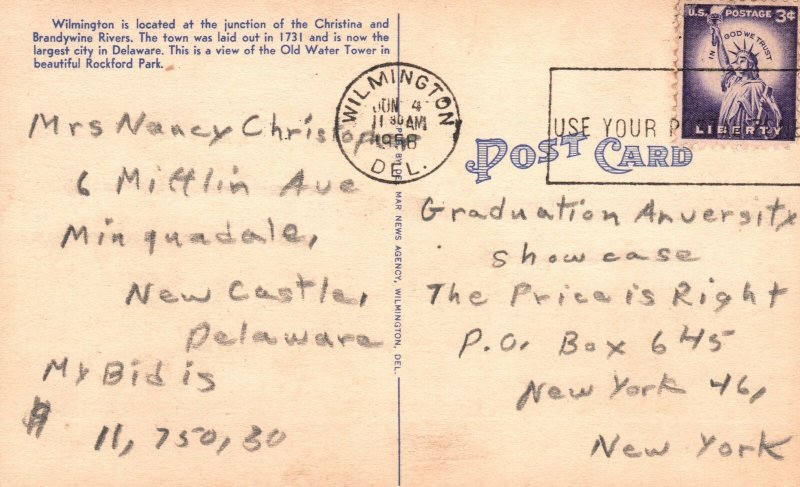 Wilmington is located at the junction of the Christina and
Brandywine Rivers. The town was laid out in 1731 and is now the
largest city in Delaware. This is a view of the Old Water Tower in
beautiful Rockford Park.
Mrs Nancy Christopher
6 Mifflin Ave
Minquadale,
New Castle,
Delaware
My Bid is
$ 11,750,30
WILMINGTON
JUN 4
11 30 AM
DEL.
U.S. POSTAGE 3¢
IN GOD WE TRUST
LIBERTY
USE YOUR
POST CARD
MAR NEWS AGENCY, WILMINGTON, DEL.
Graduation Anversity
showcase
The Price is Right
P.O. Box 645
New York 46,
New York